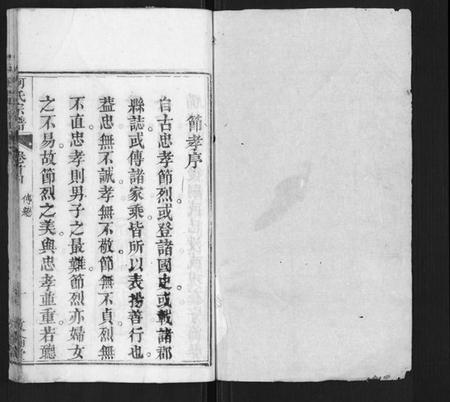 節孝序
自古忠孝節烈或登諸國史或載諸郡
縣誌或傳諸家乘皆所以表揚善行也
蓋忠無不誠孝無不敬節無不貞烈無
不直忠孝則男子之最難節烈亦婦女
之不易故節烈之美與忠孝並重若聽
何氏宗譜
卷首
傳總
一